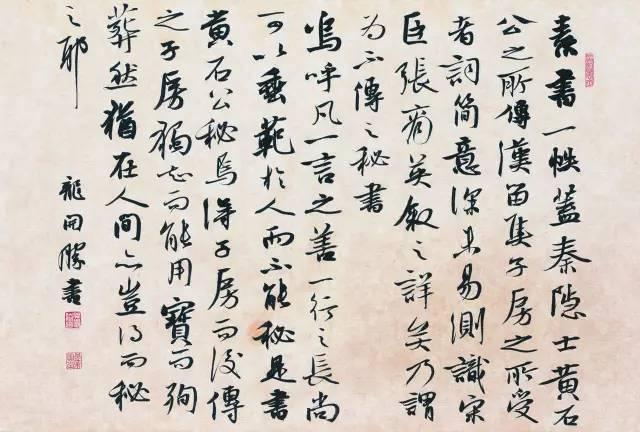 素書一帙蓋秦隐士黄石
公之所傳漢留矦子房之所受
者詞简意深未易測識宋
臣張商英叙之詳矣乃謂
为不傳之秘書
嗚呼凡一言之善一行之長尚
可以垂範於人而不能秘是書
黄石公秘焉得子房而後傳
之子房獨知而能用寶而殉
葬然猶在人間亦豈得而秘
之耶
龍開勝書